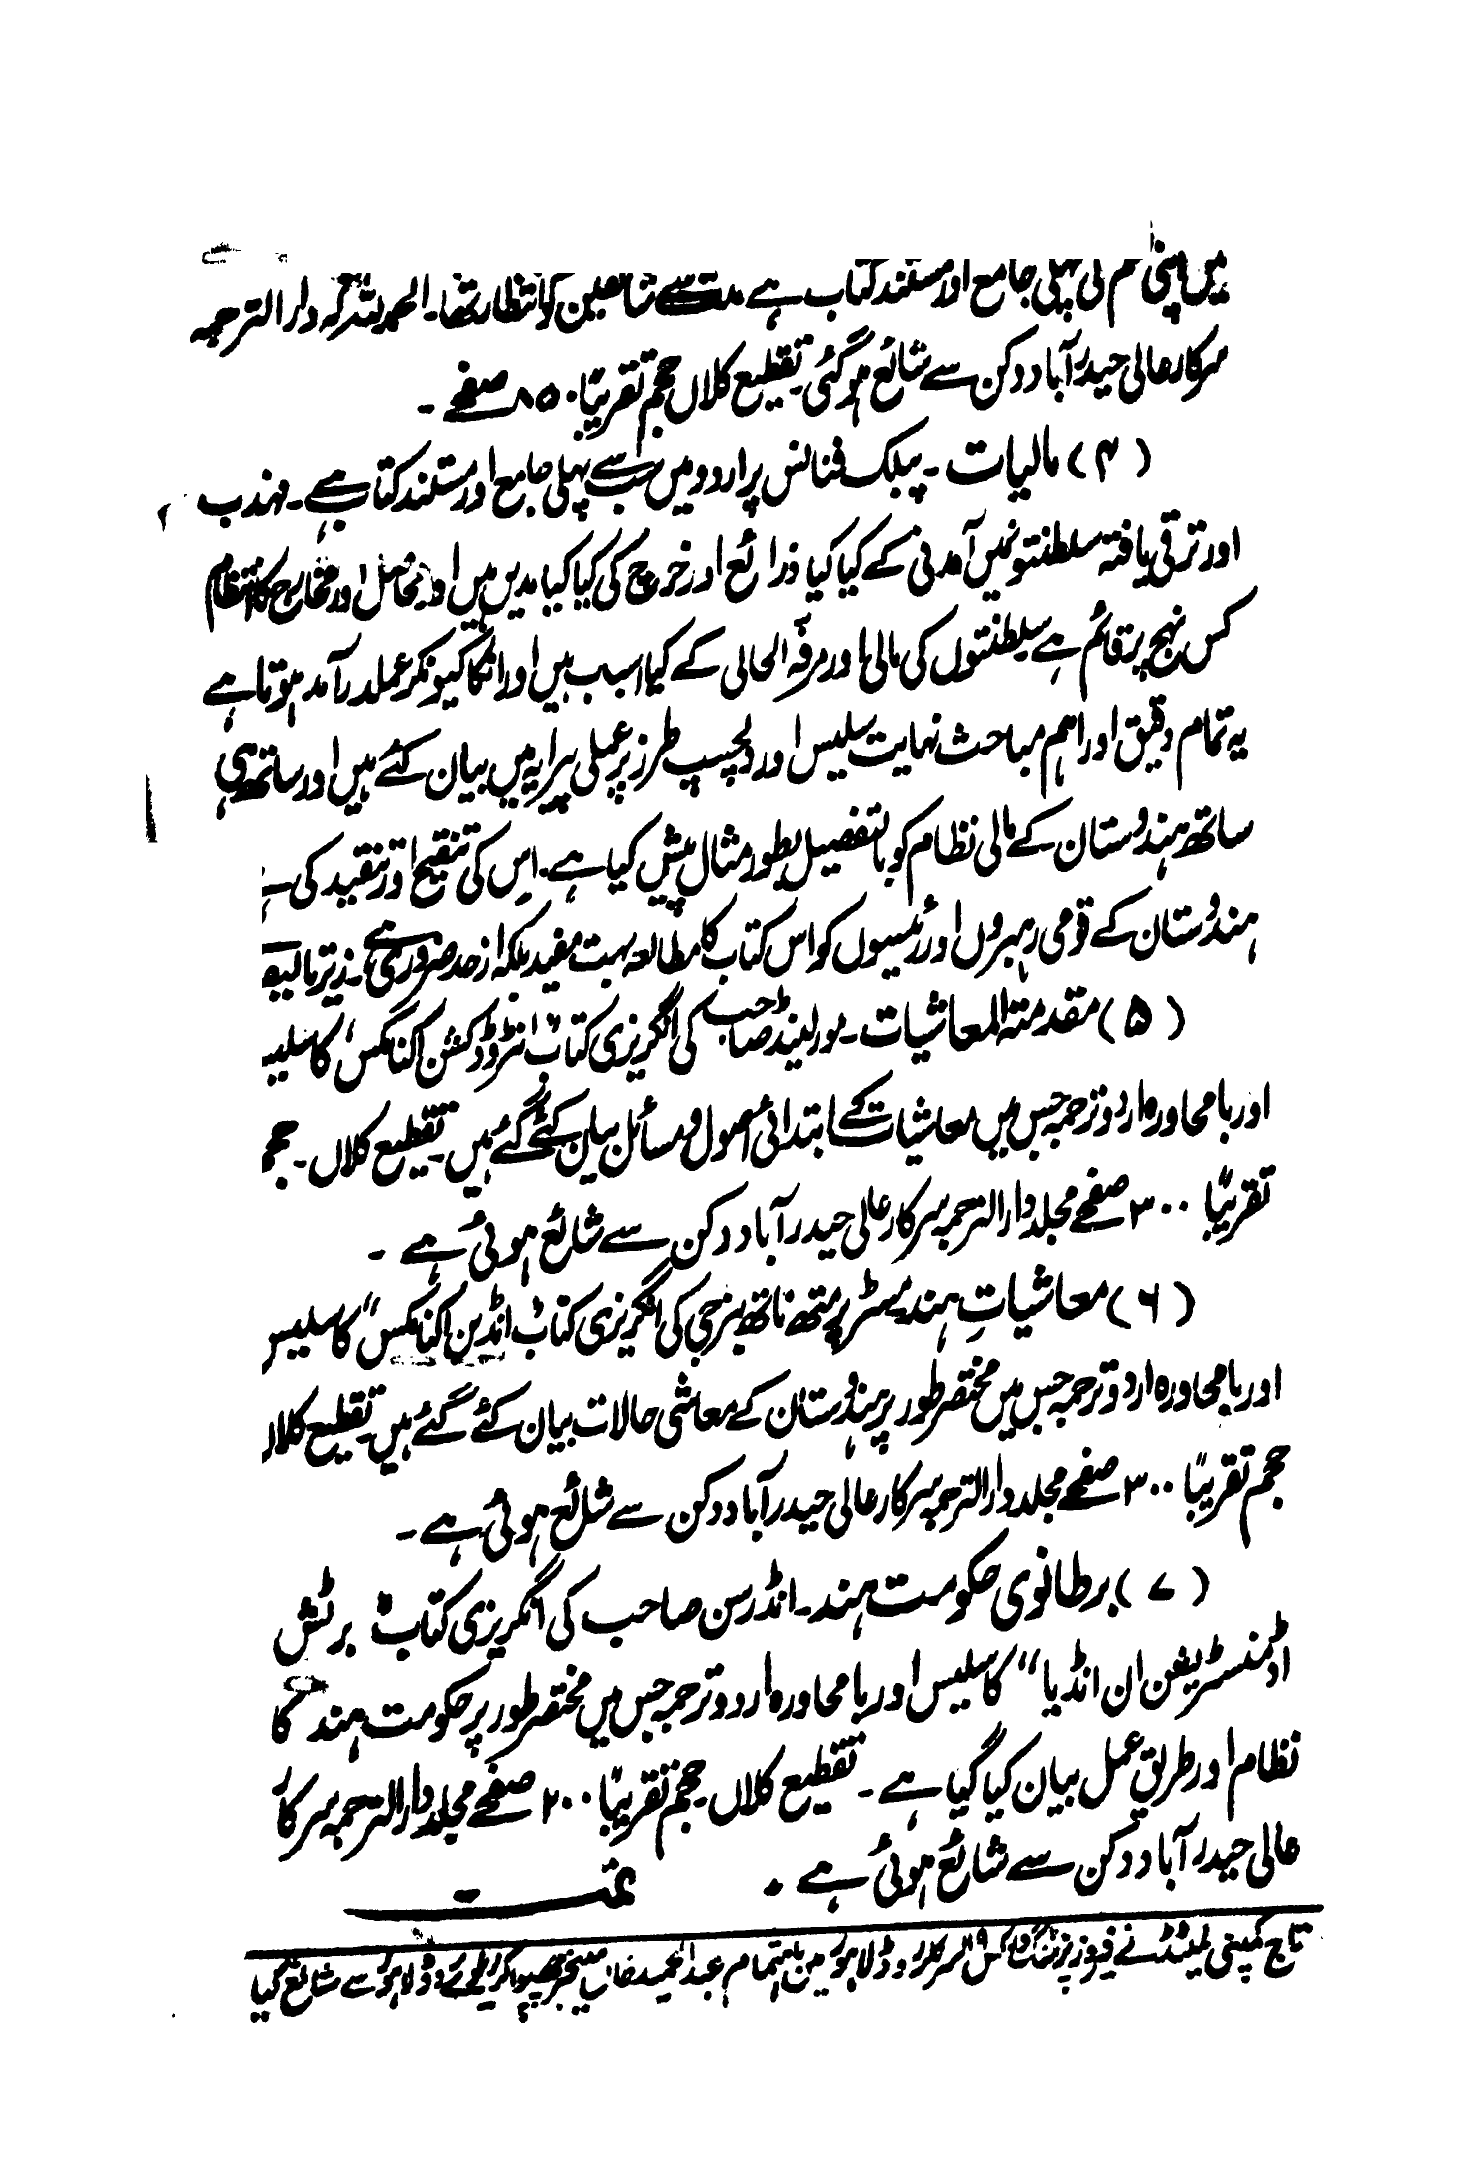 میں اپنی قسم کی پہلی جامع اور مستند کتاب ہے مدت سے شائقین کو انتظار تھا۔ الحمد للہ کہ دار الترجمہ
سرکار عالی حیدرآباد دکن سے شائع ہوگئی۔ تقطیع کلاں حجم تقریباً ۸۵۰ صفحے ۔
(۴) مالیات ۔ پبلک فنانس پر اردو میں سب سے پہلی جامع اور مستند کتاب ہے۔ مہذب
اور ترقی یافتہ سلطنتونمیں آمدنی کے کیا کیا ذرائع اور خرچ کی کیا کیا مدیں ہیں اور مداخل اور مخارج کا انتظام
کس نہج پر قائم ہے سلطنتوں کی مالی اور مرفہ الحالی کے کیا اسباب ہیں اور انکا کیونکر عملدرآمد ہوتا ہے
یہ تمام دقیق اور اہم مباحث نہایت سلیس اور دلچسپ طرز پر عملی پیرایہ میں بیان کئے ہیں اور ساتھ ہی
ساتھ ہندوستان کے مالی نظام کو بالتفصیل بطور مثال پیش کیا ہے۔ اس کی تنقیح اور تنقید کی ہے
ہندوستان کے قومی رہبروں اور رئیسوں کو اس کتاب کا مطالعہ بہت مفید بلکہ از حد ضروری ہے۔ زیر تالیف
(۵) مقدمتہ المعاشیات ۔ مورلینڈ صاحب کی انگریزی کتاب انٹروڈکشن اکنامکس کا سلیس
اور بامحاورہ اردو ترجمہ جس میں معاشیات کے ابتدائی اصول و مسائل بیان کئے گئے ہیں۔ تقطیع کلاں ۔ حجم
تقریباً ۳۰۰ صفحے مجلد دارالترجمہ سرکار عالی حیدرآباد دکن سے شائع ہوئی ہے ۔
(۶) معاشیاتِ ہند مسٹر پرمتھ ناتھ بنرجی کی انگریزی کتاب "انڈین اکنامکس" کا سلیس
اور بامحاورہ اردو ترجمہ جس میں مختصر طور پر ہندوستان کے معاشی حالات بیان کئے گئے ہیں۔ تقطیع کلاں
حجم تقریباً ۳۰۰ صفحے مجلد دارالترجمہ سرکار عالی حیدرآباد دکن سے شائع ہوئی ہے ۔
(۷) برطانوی حکومت ہند۔ انڈرسن صاحب کی انگریزی کتاب "برٹش
اڈمنسٹریشن ان انڈیا" کا سلیس اور بامحاورہ اردو ترجمہ جس میں مختصر طور پر حکومت ہند کا
نظام اور طریق عمل بیان کیا گیا ہے ۔ تقطیع کلاں۔ حجم تقریباً ۲۰۰ صفحے مجلد دارالترجمہ سرکار
عالی حیدرآباد دکن سے شائع ہوئی ہے ۔ تمت
تاج کمپنی لمیٹڈ نے فیروز پرنٹنگ ورکس سرکلر روڈ لاہور میں باہتمام عبدالحمید خاں مینجر چھپوا کر ریلوے روڈ لاہور سے شائع کیا